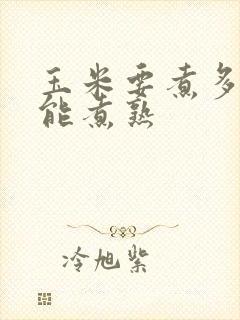 玉米要煮多
能煮熟
冷旭紫